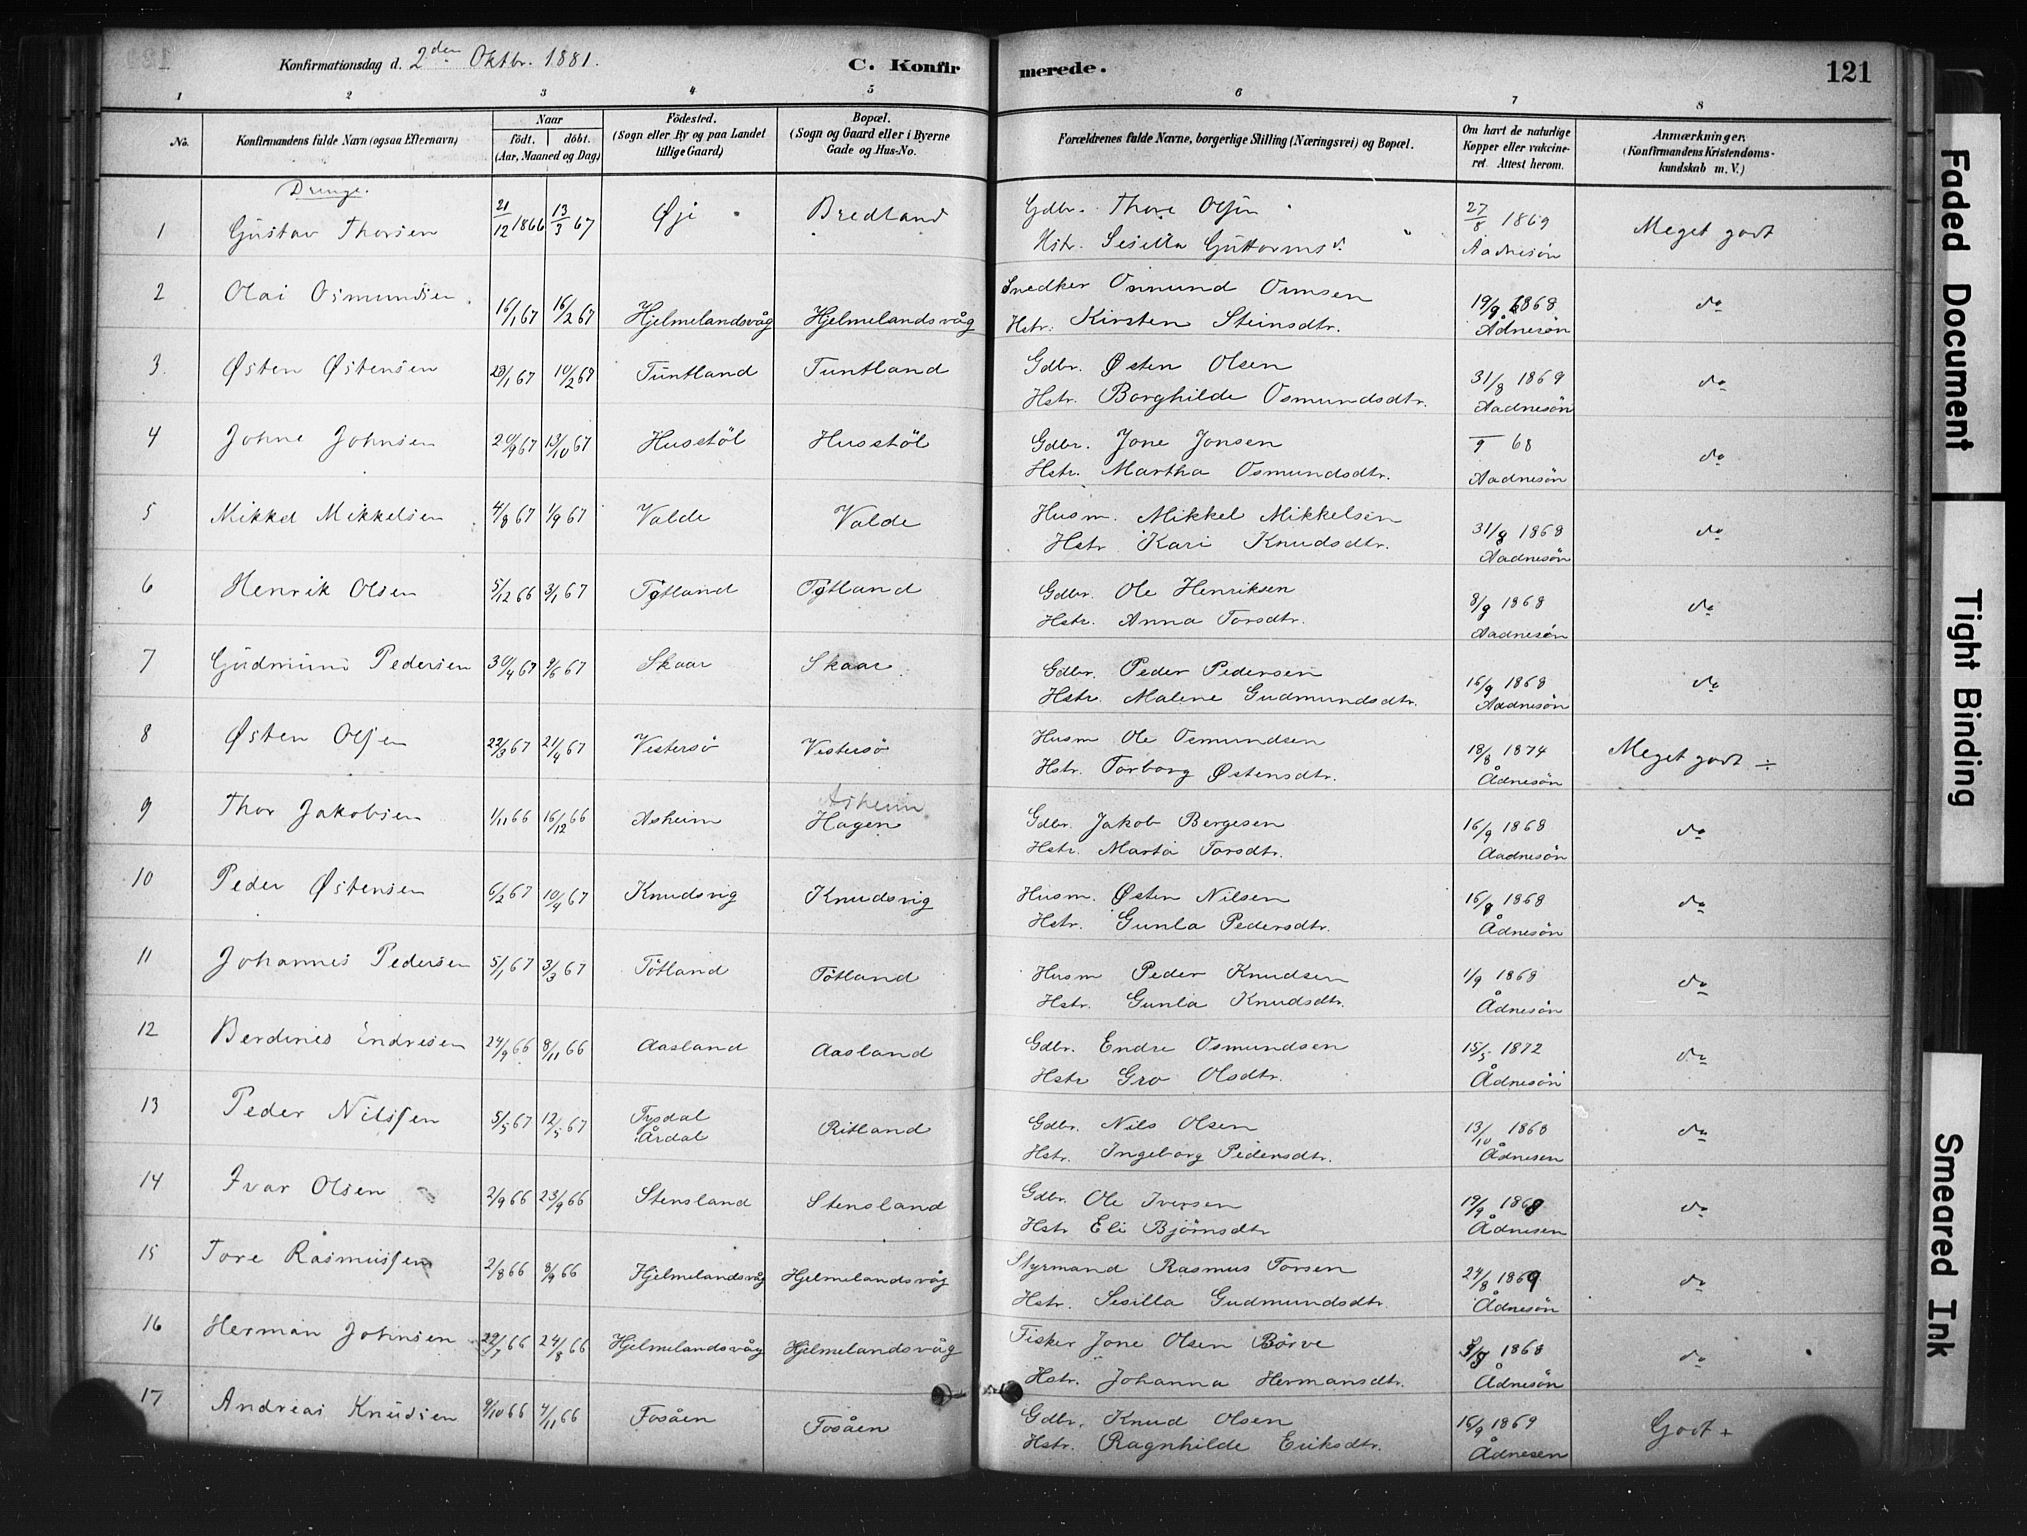 Konfirmationsdag d. 2den Oktbr. 1881.
C. Konfirmerede.
121
1 2 3 4 5 6 7 8
No. Konfirmandens fulde Navn (ogsaa Efternavn) Naar födt. döbt. (Aar, Maaned og Dag) Födested. (Sogn eller By og paa Landet tillige Gaard) Bopæl. (Sogn og Gaard eller i Byerne Gade og Hus-No. Forældrenes fulde Navne, borgerlige Stilling (Næringsvei) og Bopæl. Om havt de naturlige Kopper eller vakcineret Attest herom. Anmærkninger. (Konfirmandens Kristendomskundskab m. V.)
Drenge.
1 Gustav Thorsen 21/12 1866 13/3 67 Øje Bredland Gdbr. Thore Olsen 27/8 1869 Meget godt
Hstr. Sesilla Guttormsd. Aadnesøn
2 Olai Osmundsen 16/1 67 16/2 67 Hjelmelandsvåg Hjelmelandsvåg Snedker Osmund Ormsen 19/9 1868 do
Hstr. Kirsten Steinsdtr. Ådnesøn
3 Østen Østensen 28/1 67 10/2 67 Tuntland Tuntland Gdbr. Østen Olsen 31/8 1869 do
Hstr. Borghilde Osmundsdtr. Aadnesøn
4 Johne Johnsen 20/9 67 13/10 67 Husstöl Husstöl Gdbr. Jone Jonsen 9 68 do
Hstr. Martha Osmundsdtr. Aadnesøn
5 Mikkel Mikkelsen 4/8 67 1/9 67 Valde Valde Husm. Mikkel Mikkelsen 31/8 1868 do
Hstr Kari Knudsdtr. Aadnesøn
6 Henrik Olsen 5/12 66 3/1 67 Tøtland Tøtland Gdbr. Ole Henriksen 8/9 1868 do
Hstr. Anna Torsdtr. Aadnesøn
7 Gudmund Pedersen 30/4 67 9/6 67 Skaar Skaar Gdbr. Peder Pedersen 16/9 1868 do
Hstr. Malene Gudmundsdtr. Aadnesøn
8 Østen Olsen 22/3 67 21/4 67 Vestersö Vestersö Husm Ole Osmundsen 18/8 1874 Meget godt ÷
Hstr. Torborg Østensdtr. Ådnesøn
9 Thor Jakobsen 1/11 66 16/12 66 Asheim Asheim Hagen Gdbr. Jakob Bergesen 16/9 1868 do
Hstr. Marta Torsdtr. Aadnesøn
10 Peder Østensen 6/2 67 10/4 67 Knudsvig Knudsvig Husm. Østen Nilsen 16/9 1868 do
Hstr. Gunla Pedersdtr. Ådnesøn
11 Johannes Pedersen 5/1 67 3/3 67 Tötland Tötland Husm Peder Knudsen 1/9 1868 do
Hstr. Gunla Knudsdtr. Ådnesøn
12 Berdines Endresen 24/9 66 8/11 66 Aasland Aasland Gdbr. Endre Osmundsen 15/5 1872 do
Hstr Gro Olsdtr. Ådnesøn
13 Peder Nilssen 5/5 67 12/5 67 Tysdal Årdal Ritland Gdbr. Nils Olsen 13/10 1868 do
Hstr. Ingeborg Pedersdtr. Ådnesen
14 Ivar Olsen 2/9 66 23/9 66 Stensland Stensland Gdbr. Ole Iversen 19/9 1868 do
Hstr Eli Bjørnsdtr Ådnesen
15 Tore Rasmussen 2/8 66 8/9 66 Hjelmelandsvåg Hjelmelandsvåg Styrmand Rasmus Torsen 24/8 1869 do
Hstr. Sesilla Gudmundsdtr. Ådnesøn
16 Herman Johnsen 29/7 66 24/8 66 Hjelmelandsvåg Hjelmelandsvåg Fisker Jone Olsen Börve 1868 do
Hstr. Johanna Hermansdtr. Ådnesøn
17 Andreas Knudsen 9/10 66 4/11 66 Fosåen Fosåen Gdbr. Knud Olsen 16/9 1869 Godt +
Hstr. Ragnhilde Eriksdtr. Ådnesen
Faded Document
Tight Binding
Smeared Ink